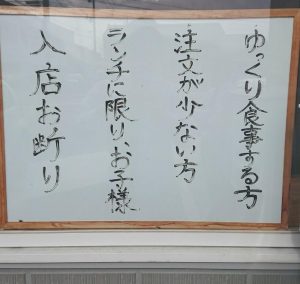 ゆっくり食事する方
注文が少ない方
ランチに限り、お子様
入店お断り